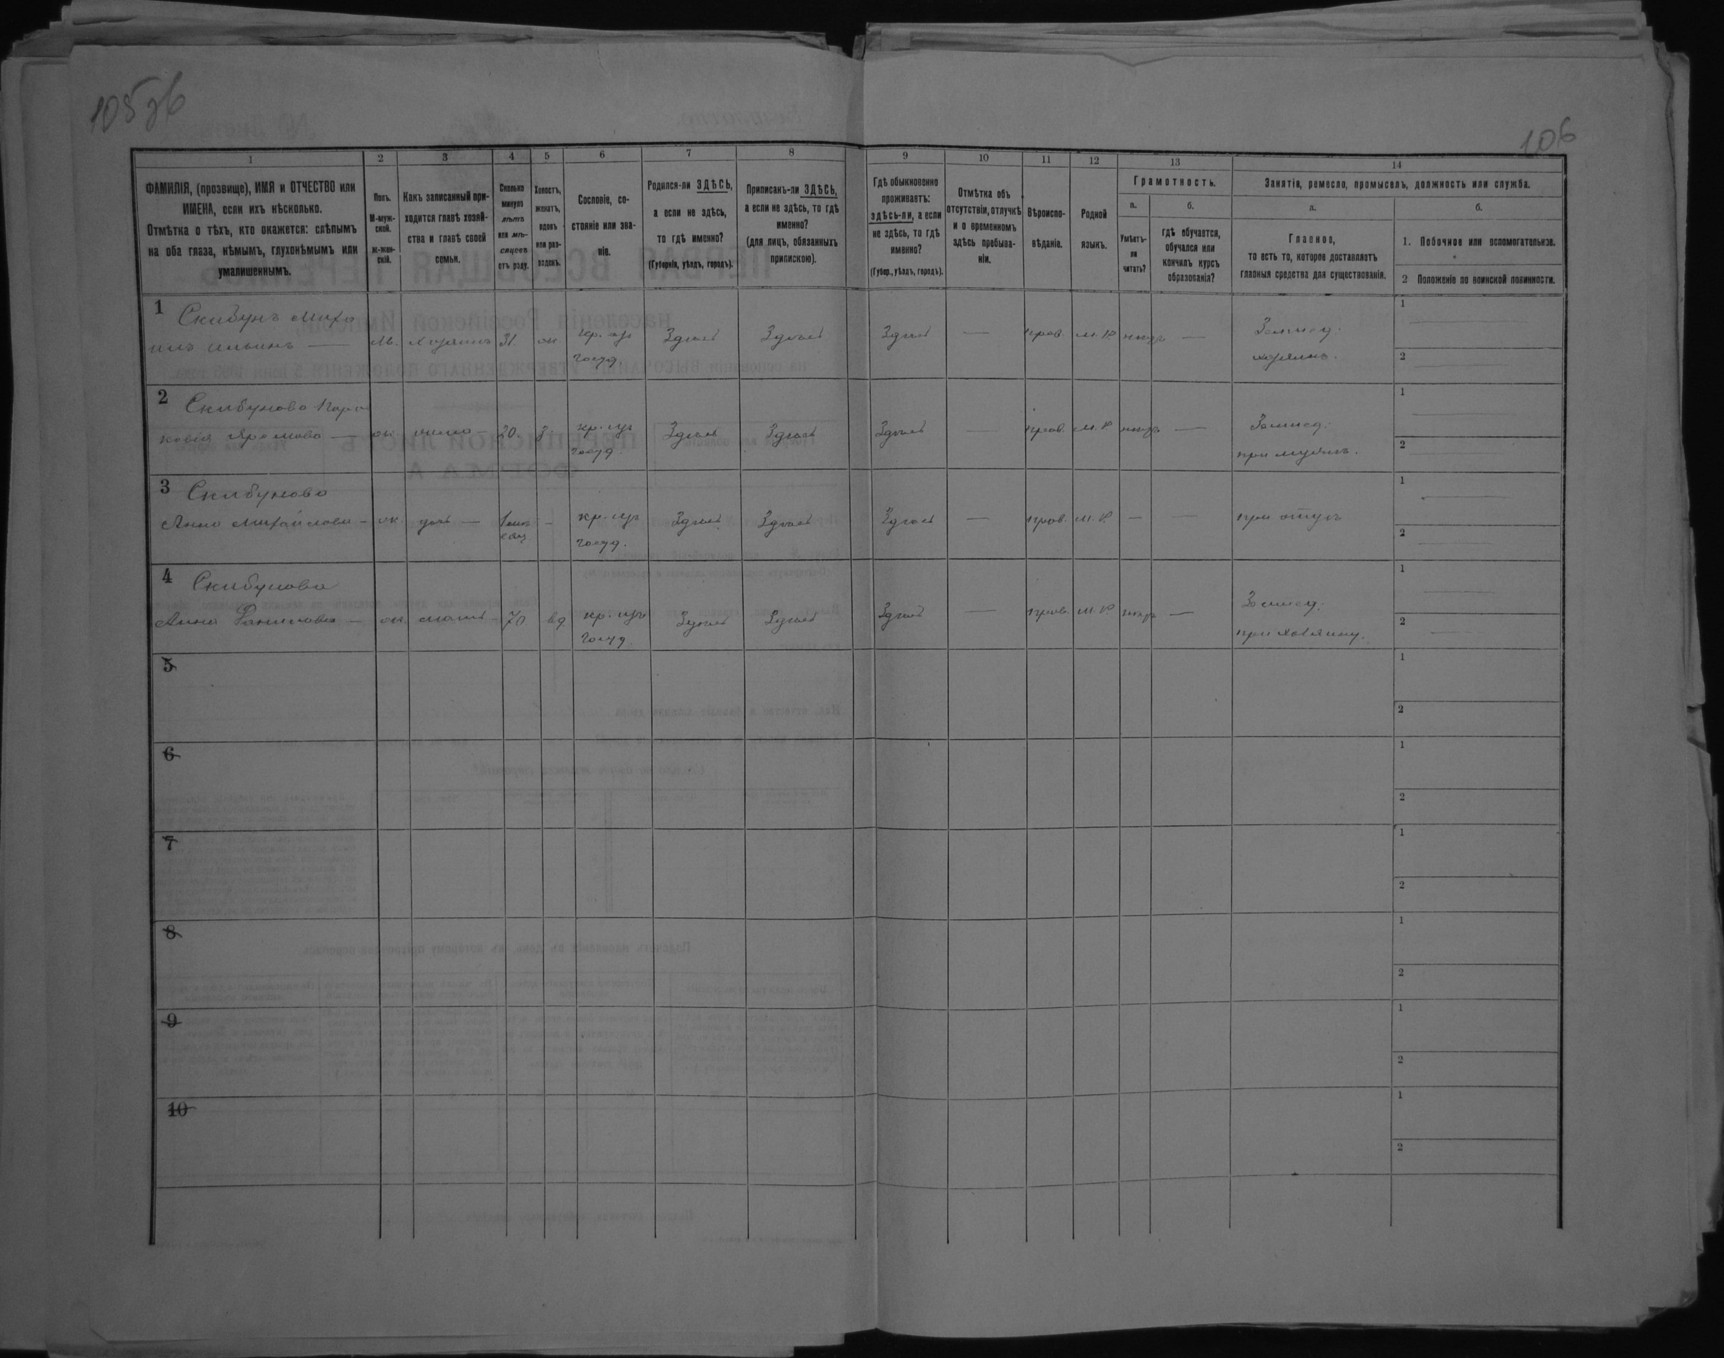 105об
106
1
2
3
4
5
6
7
8
9
10
11
12
13
14
ФАМИЛІЯ, (прозвище), ИМЯ и ОТЧЕСТВО или
ИМЕНА, если ихъ нѣсколько.
Отмѣтка о тѣхъ, кто окажется: слѣпымъ
на оба глаза, нѣмымъ, глухонѣмымъ или
умалишеннымъ.
Полъ.
М-муж-
ской.
ж-жен-
скій.
Какъ записанный при-
ходится главѣ хозяй-
ства и главѣ своей
семьи.
Сколько
минуло
лѣтъ
или мѣ-
сяцевъ
отъ роду.
Холостъ,
женатъ,
вдовъ
или раз-
веденъ.
Сословіе, со-
стояніе или зва-
ніе.
Родился-ли ЗДѢСЬ,
а если не здѣсь,
то гдѣ именно?
(Губернія, уѣздъ, городъ).
Приписанъ-ли ЗДѢСЬ,
а если не здѣсь, то гдѣ
именно?
(для лицъ, обязанныхъ
припискою).
Гдѣ обыкновенно
проживаетъ:
здѣсь-ли, а если
не здѣсь, то гдѣ
именно?
(Губер., уѣздъ, городъ).
Отмѣтка объ
отсутствіи, отлучкѣ
и о временномъ
здѣсь пребыва-
ніи.
Вѣроиспо-
вѣданіе.
Родной
языкъ.
Грамотность.
а.
Умѣетъ-
ли
читать?
б.
гдѣ обучается,
обучался или
кончилъ курсъ
образованія?
Занятія, ремесло, промыселъ, должность или служба.
а.
Главное,
то есть то, которое доставляетъ
главныя средства для существованія.
б.
1. Побочное или вспомогательное.
2 Положеніе по воинской повинности.
1 Скибунъ Миха
илъ Ильинъ —
М.
Хозяинъ
31
жн
госуд
Здѣсь
Здѣсь
Здѣсь
—
прав.
м. Р
—
Землед.
хозяинъ.
1
2
2 Скибунова Парас
ковія —
ж
жена —
20
госуд
Здѣсь
Здѣсь
Здѣсь
—
прав.
м. Р
—
Землед.
при мужѣ.
1
2
3 Скибунова
Анна Михайлова —
ж
дочь —
1 мѣс
яц
—
госуд.
Здѣсь
Здѣсь
Здѣсь
—
прав.
м. Р
—
—
при отцѣ
1
2
4 Скибунова
Анна —
ж
мать —
70
вд
госуд.
Здѣсь
Здѣсь
Здѣсь
—
прав.
м. Р.
—
Землед.
при хозяину.
1
2
5
1
2
6
1
2
7
1
2
8
1
2
9
1
2
10
1
2